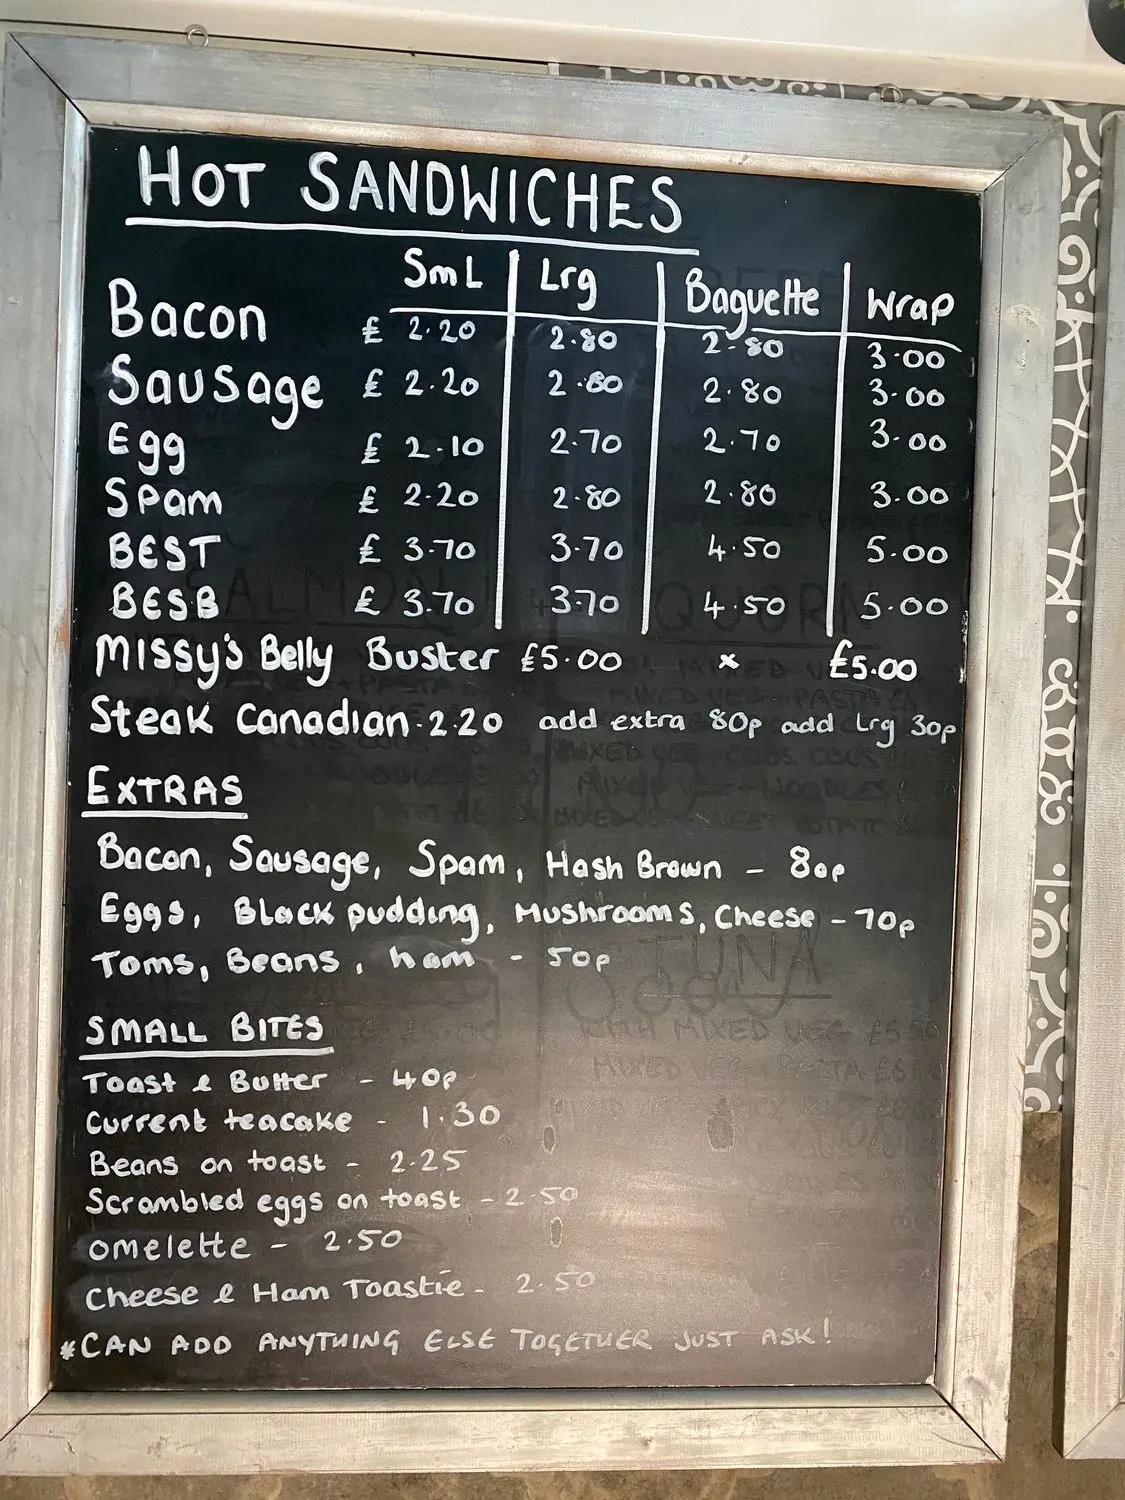 HOT SANDWICHES
SmL Lrg Baguette Wrap
Bacon £ 2.20 2.80 2-80 3.00
Sausage £ 2.20 2.80 2.80 3.00
Egg £ 2.10 2.70 2.70 3.00
Spam £ 2.20 2.80 2.80 3.00
BEST £ 3.70 3.70 4.50 5.00
BESB £ 3.70 3.70 4.50 5.00
Missy's Belly Buster £5.00 x £5.00
Steak Canadian - 2.20 add extra 80p add Lrg 30p
EXTRAS
Bacon, Sausage, Spam, Hash Brown - 80p
Eggs, Black pudding, Mushrooms, Cheese - 70p
Toms, Beans, ham - 50p
SMALL BITES
Toast & Butter - 40p
Current teacake - 1.30
Beans on toast - 2.25
Scrambled eggs on toast - 2.50
omelette - 2.50
Cheese & Ham Toastie - 2.50
*CAN ADD ANYTHING ELSE TOGETHER JUST ASK!